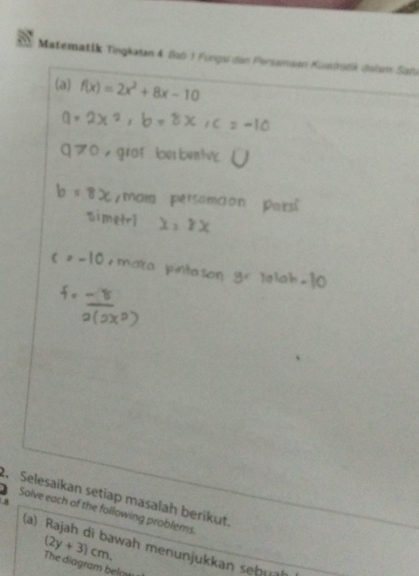 Matematik Tingkatan 4 Bab 1 Fungsi dan Persamaan Kuadratik dalam
(a) f(x) = 2x² + 8x − 10
a = 2x², b = 8x, c = -10
a>0, graf berbentuk ∪
b = 8x, maka persamaan paksi
simetri x = 8x
c = -10, maka pintasan y ialah -10
f = -8
2(2x²)
2. Selesaikan setiap masalah berikut.
Solve each of the following problems.
(a) Rajah di bawah menunjukkan sebuah
(2y + 3) cm.
The diagram below